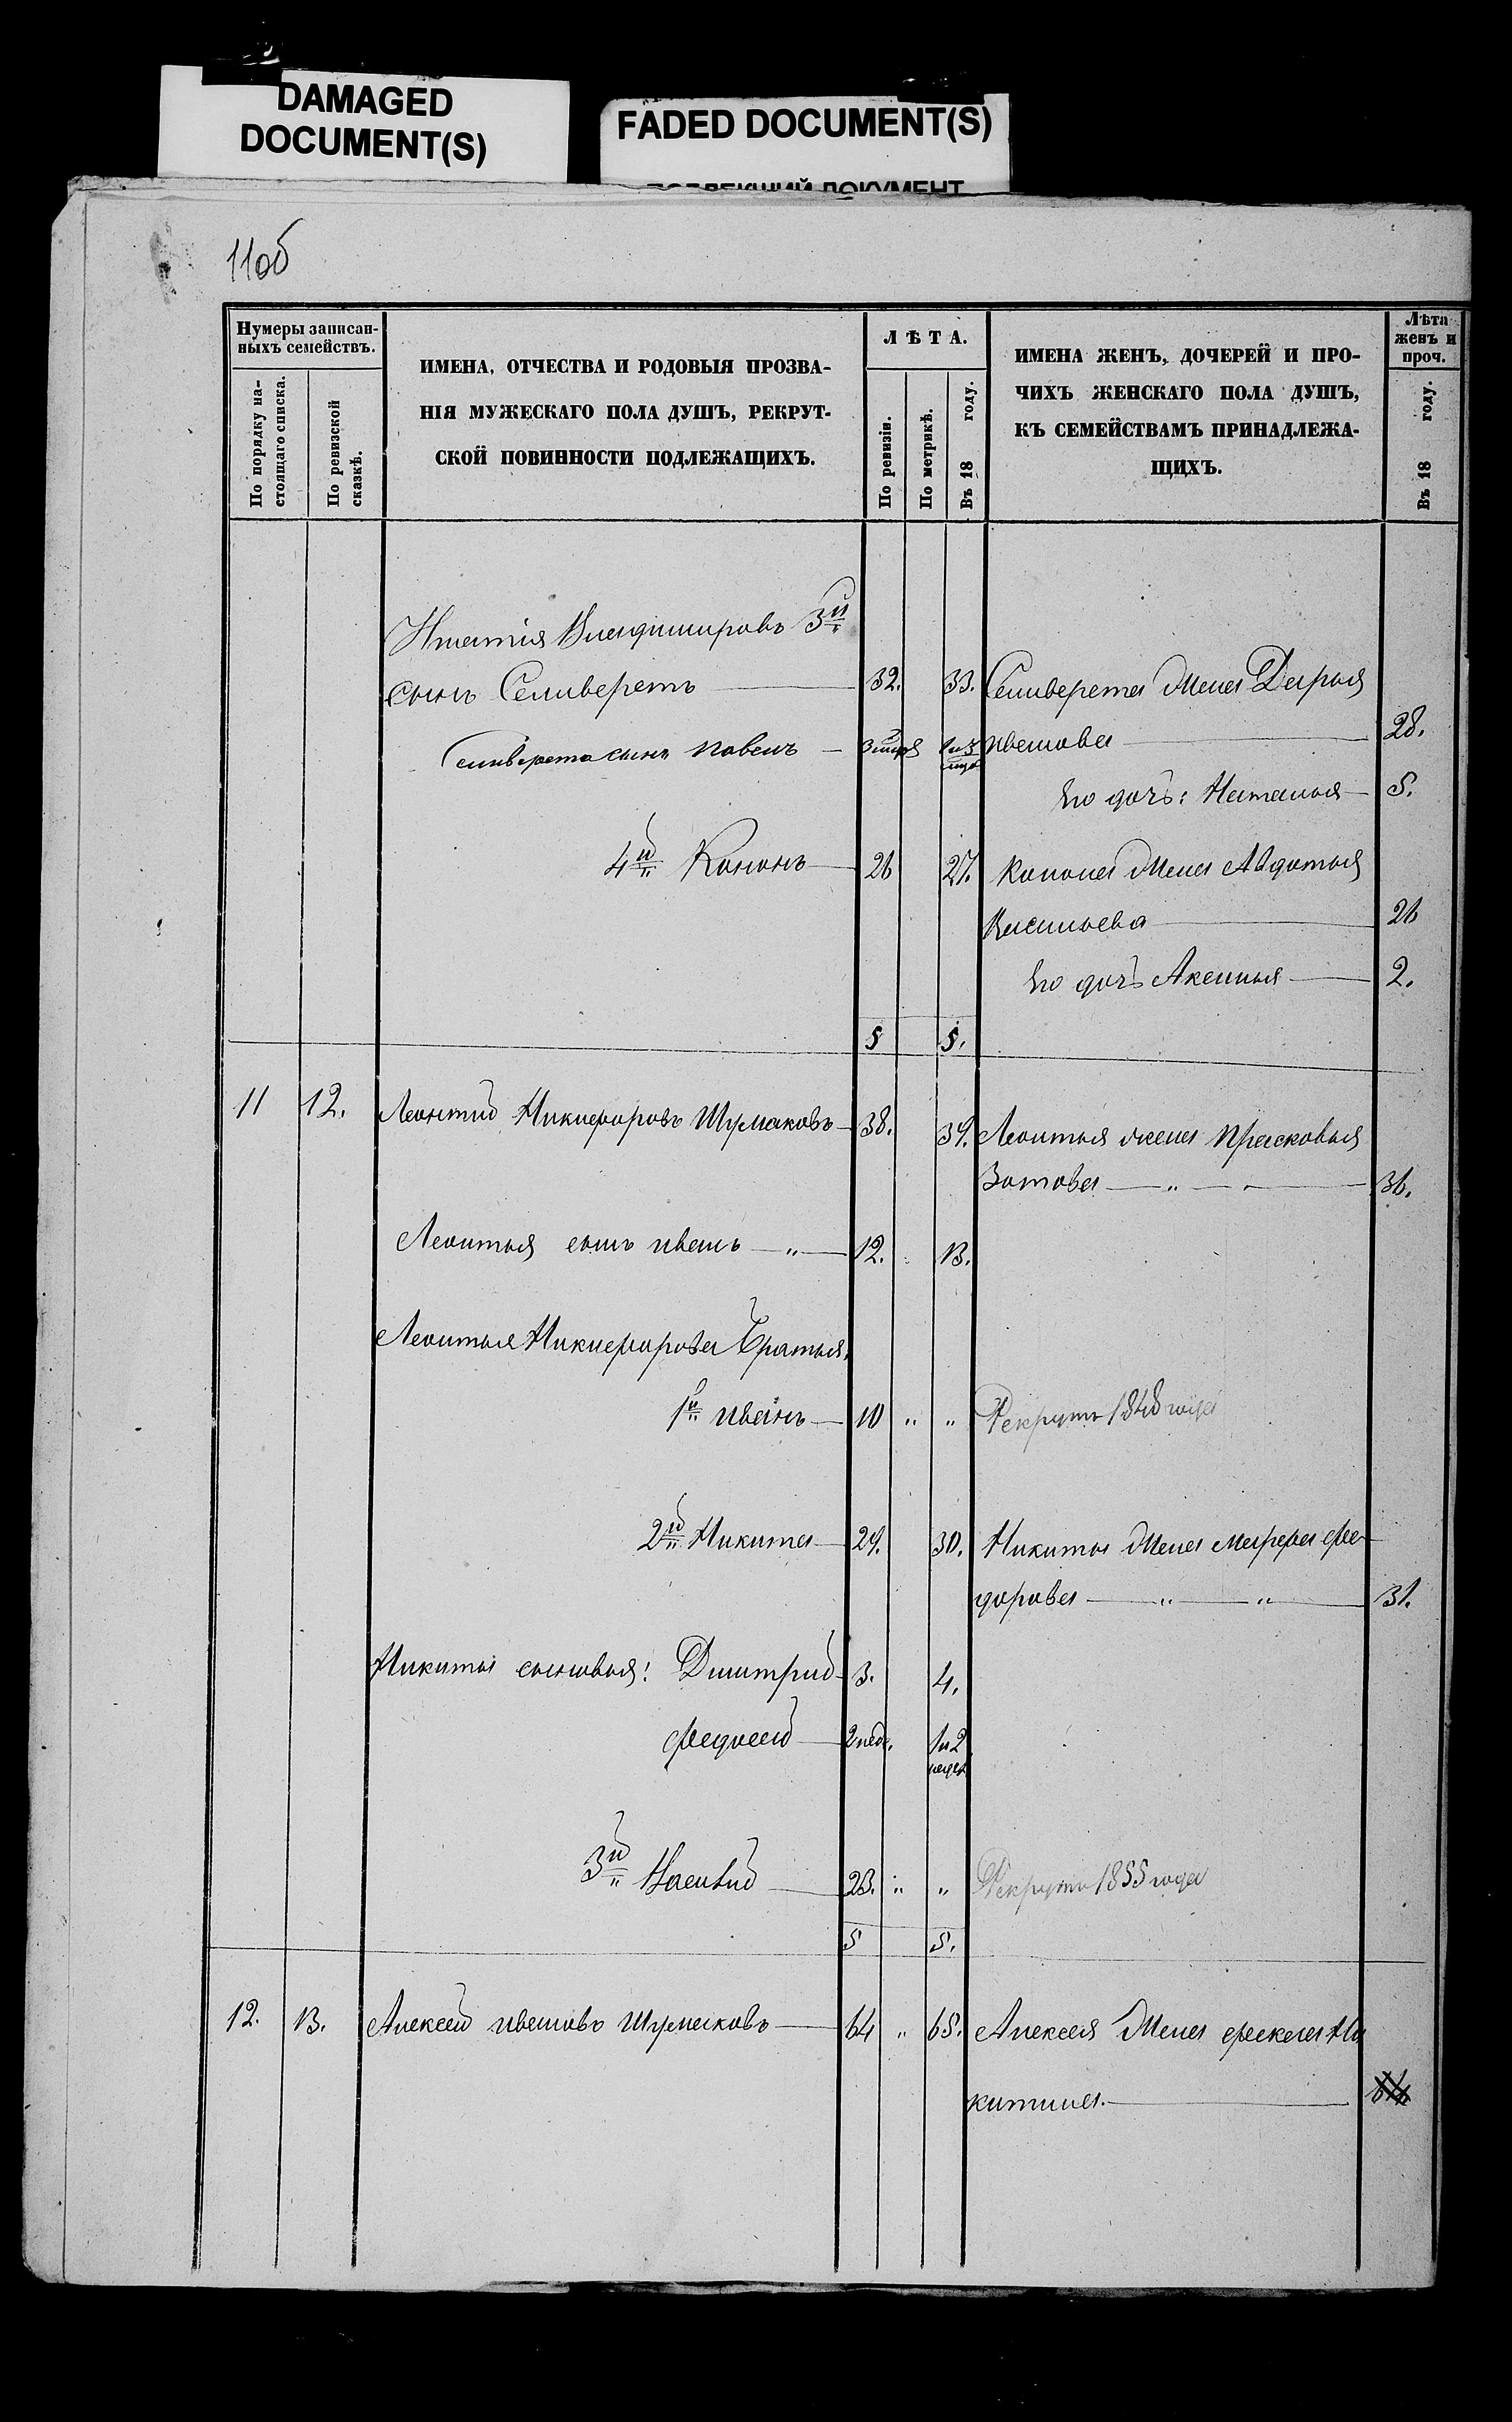 DAMAGED
DOCUMENT(S)
FADED DOCUMENT(S)
11об
Нумеры записан-
ныхъ семействъ.
По порядку на-
стоящаго списка.
По ревизской
сказкѣ.
ИМЕНА, ОТЧЕСТВА И РОДОВЫЯ ПРОЗВА-
НІЯ МУЖЕСКАГО ПОЛА ДУШЪ, РЕКРУТ-
СКОЙ ПОВИННОСТИ ПОДЛЕЖАЩИХЪ.
ЛѢТА.
По ревизіи.
По метрикѣ.
Въ 18 году.
ИМЕНА ЖЕНЪ, ДОЧЕРЕЙ И ПРО-
ЧИХЪ ЖЕНСКАГО ПОЛА ДУШЪ,
КЪ СЕМЕЙСТВАМЪ ПРИНАДЛЕЖА-
ЩИХЪ.
Лѣта
женъ и
проч.
Въ 18 году.
Ипатія Владимировъ 3й
сынъ Селиверстъ 32. 33. Селиверста жена Дарья
Селиверста сынъ Павелъ иванова 28.
Его дочь: Наталья 5.
4й Кононъ 26 27. Конона жена Авдотья
Васильева 26
Его дочь Аксинья 2.
5 5.
11 12. Леонтий Никифоровъ Шумаковъ 38. 39. Леонтья жена Прасковья
Зотова " 36.
Леонтья сынъ иванъ " 12. 13.
Леонтья Никифорова Братья,
1й иванъ 10 " " Рекрутъ 1848 года
2й Никита 29. 30. Никиты жена Марфа Фе-
дорова " " 31.
Никиты сыновья: Димитрий 3. 4.
Федосей 2 нед. 1 и 2
недел
3й 23. " " Рекрутъ 1855 года
5 5.
12. 13. Алексей ивановъ Шумаковъ 64 " 65. Алексея жена Фекла Ни
китина.